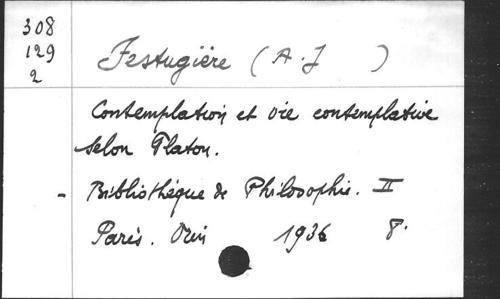 308
129
2
Festugière (A. J )
Contemplation et vie contemplative
selon Platon.
- Bibliothèque de Philosophie. II
Paris. Vrin 1936 8°.